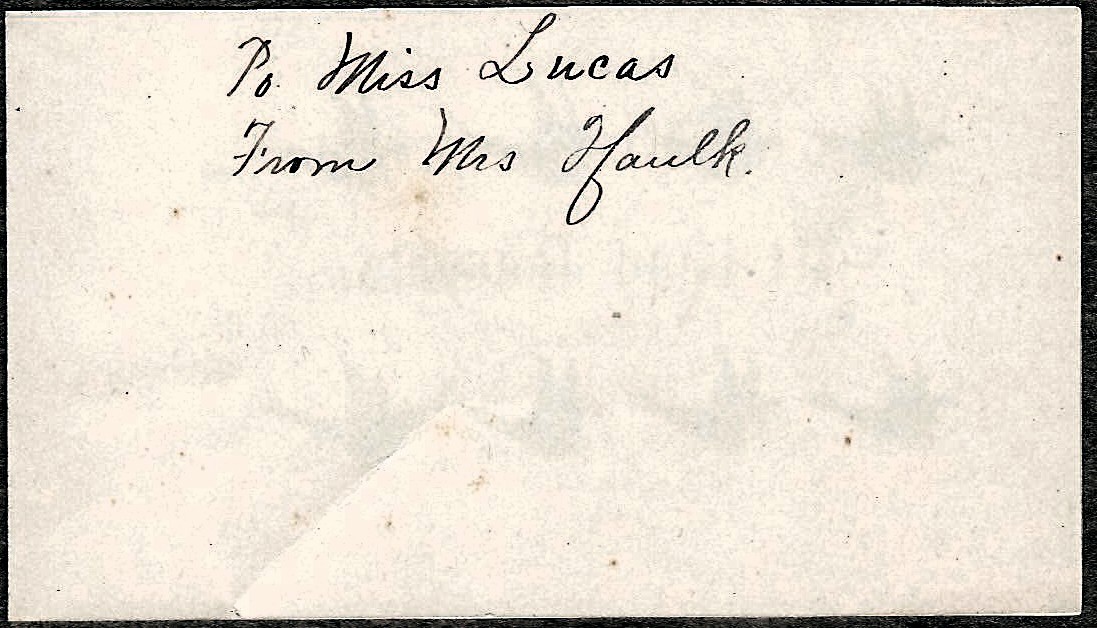 To Miss Lucas
From Mrs Haulk.